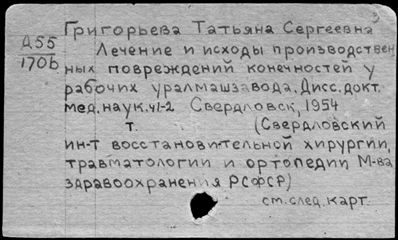 Григорьева Татьяна Сергеевна
Д55
170б
Лечение и исходы производствен
ных повреждений конечностей у
рабочих уралмашзавода. Дисс. докт.
мед. наук. ч1-2 Свердловск, 1954
т. (Свердловский
ин-т восстановительной хирургии,
травматологии и ортопедии М-ва
здравоохранения РСФСР)
см. след. карт.